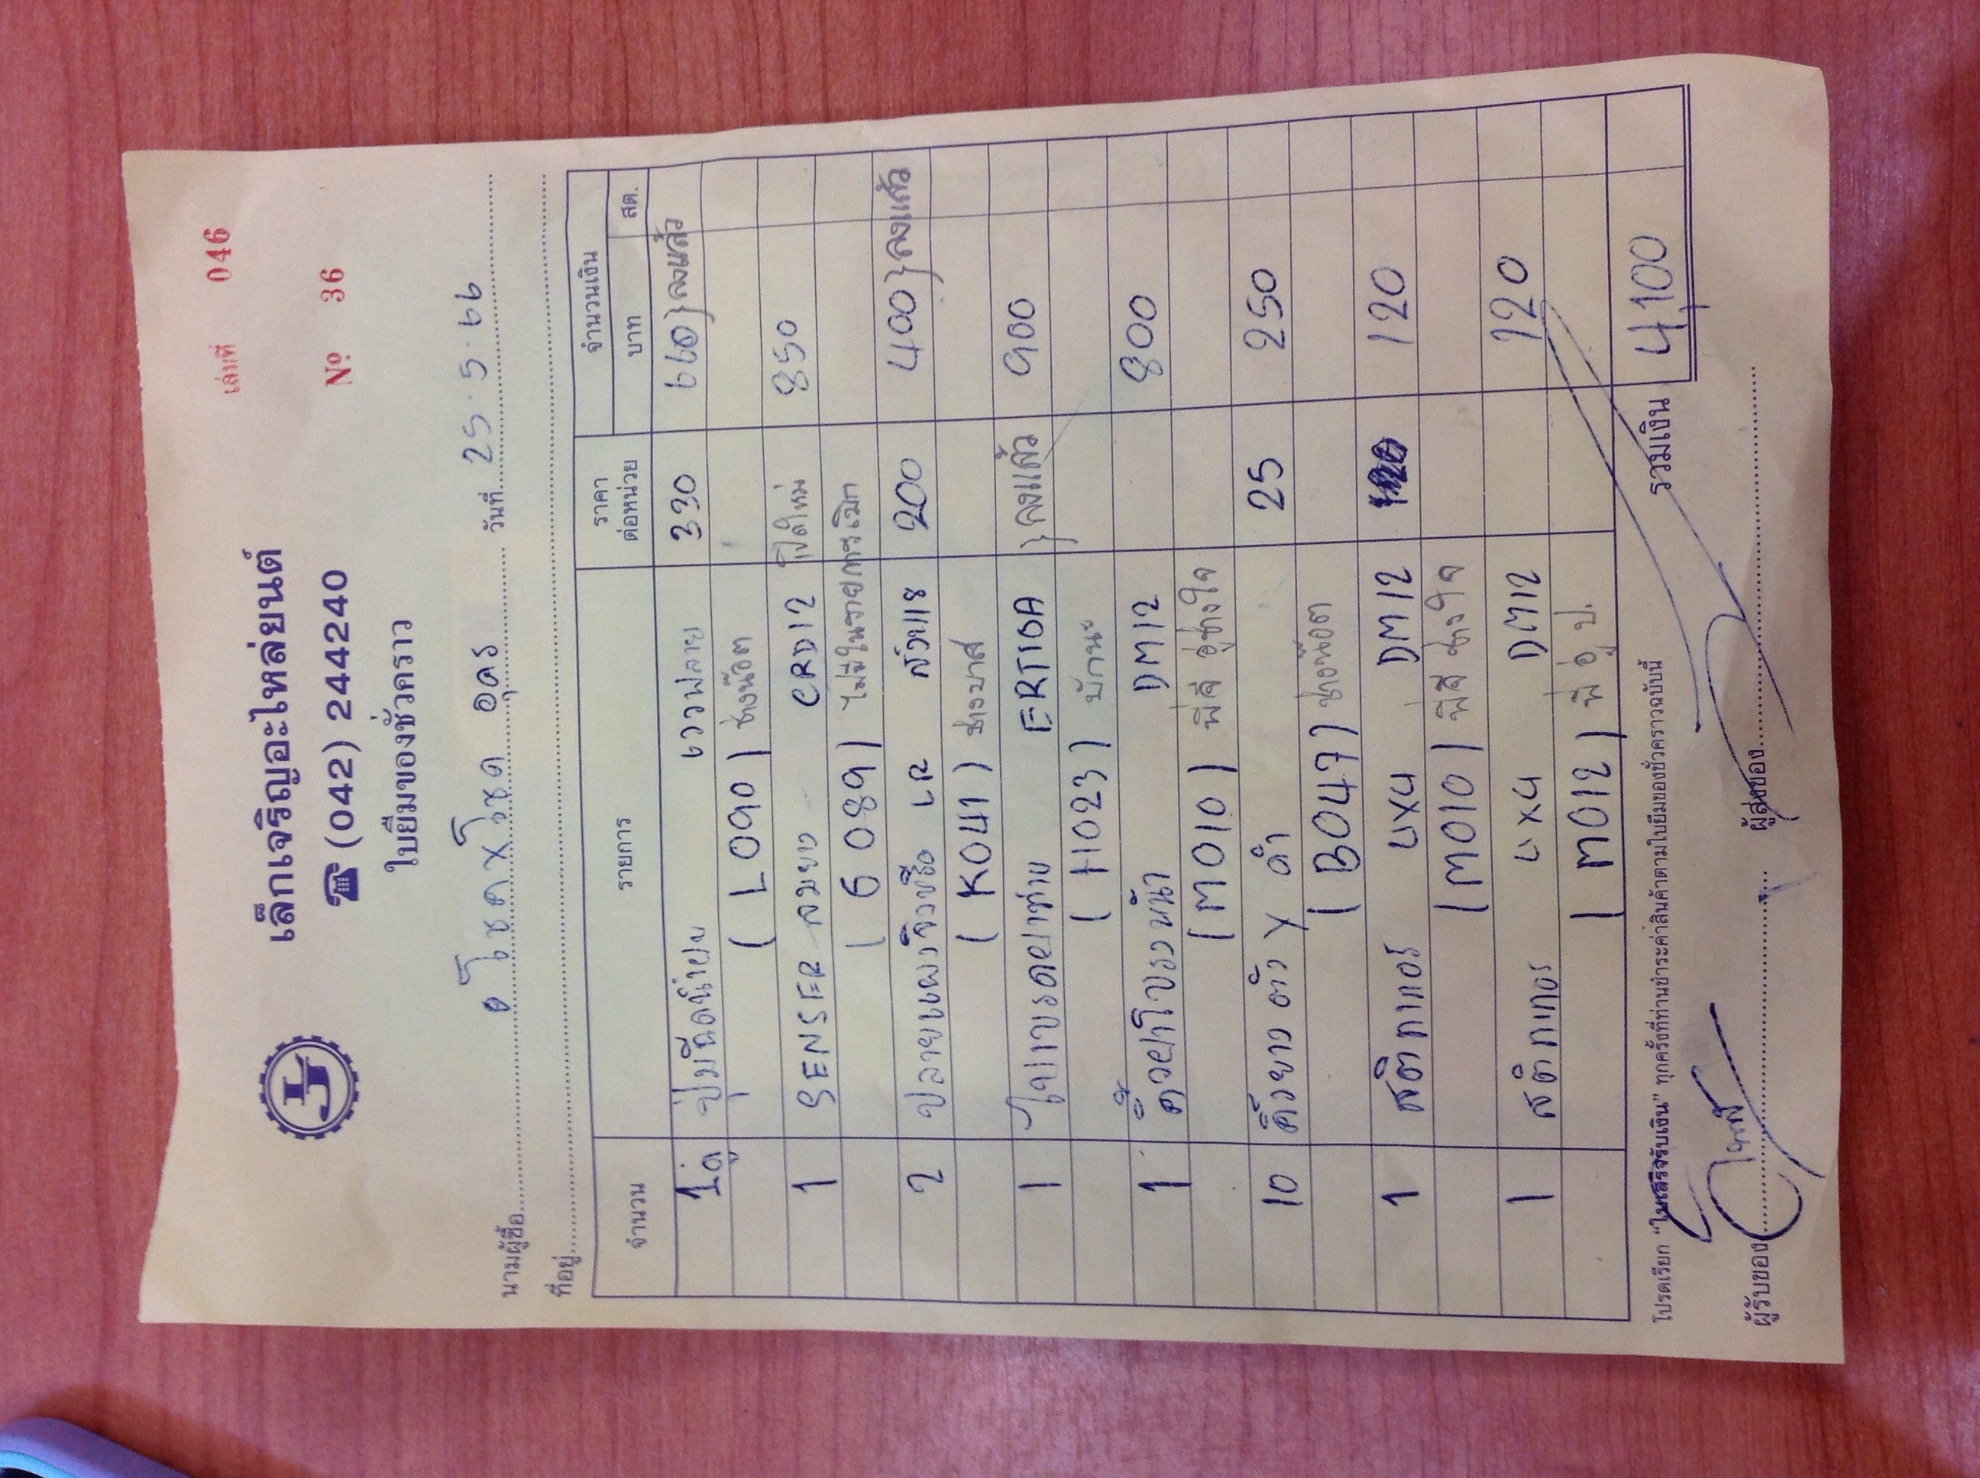 เล่มที่ 046
เล็กเจริญอะไหล่ยนต์
☎ (042) 244240
Nº 36
ใบยืมของชั่วคราว
นามผู้ซื้อ อู่โชคคูณโชค อุดร วันที่ 25.5.66
ที่อยู่
จำนวน รายการ ราคาต่อหน่วย จำนวนเงิน
บาท สต.
1คู่ ปุ่มฉีดน้ำฝน เวฟลาย 330 660 } ลงแล้ว
( L 090 ) ช่างน๊อต
1 SENSER ลมยาง CRD12 เปิดใหม่ 850
( G 089 ) ไม่มีในรายการเบิก
2 LR 200 400 } ลงแล้ว
( K041 ) ช่างบาส
1 ใบเบรคยาซ้าย ERTIGA } ลงแล้ว 900
( H023 ) บักนะ
1 คิ้วฝากระโปรงหน้า DM12 800
( M010 ) พี่สี อู่ช่างใจ
10 คิ้วยาง ตัว Y ดำ 25 250
( B047 ) ช่างน๊อต
1 สติกเกอร์ 4X4 DM12 120
( M010 ) พี่สี ช่างใจ
1 สติกเกอร์ 4X4 DM12 120
( M012 ) พี่อู๋ ป.
รวมเงิน 4,100
โปรดเรียก "ใบเสร็จรับเงิน" ทุกครั้งที่ท่านชำระค่าสินค้าตามใบยืมของชั่วคราวฉบับนี้
ผู้รับของ ผู้ส่งของ